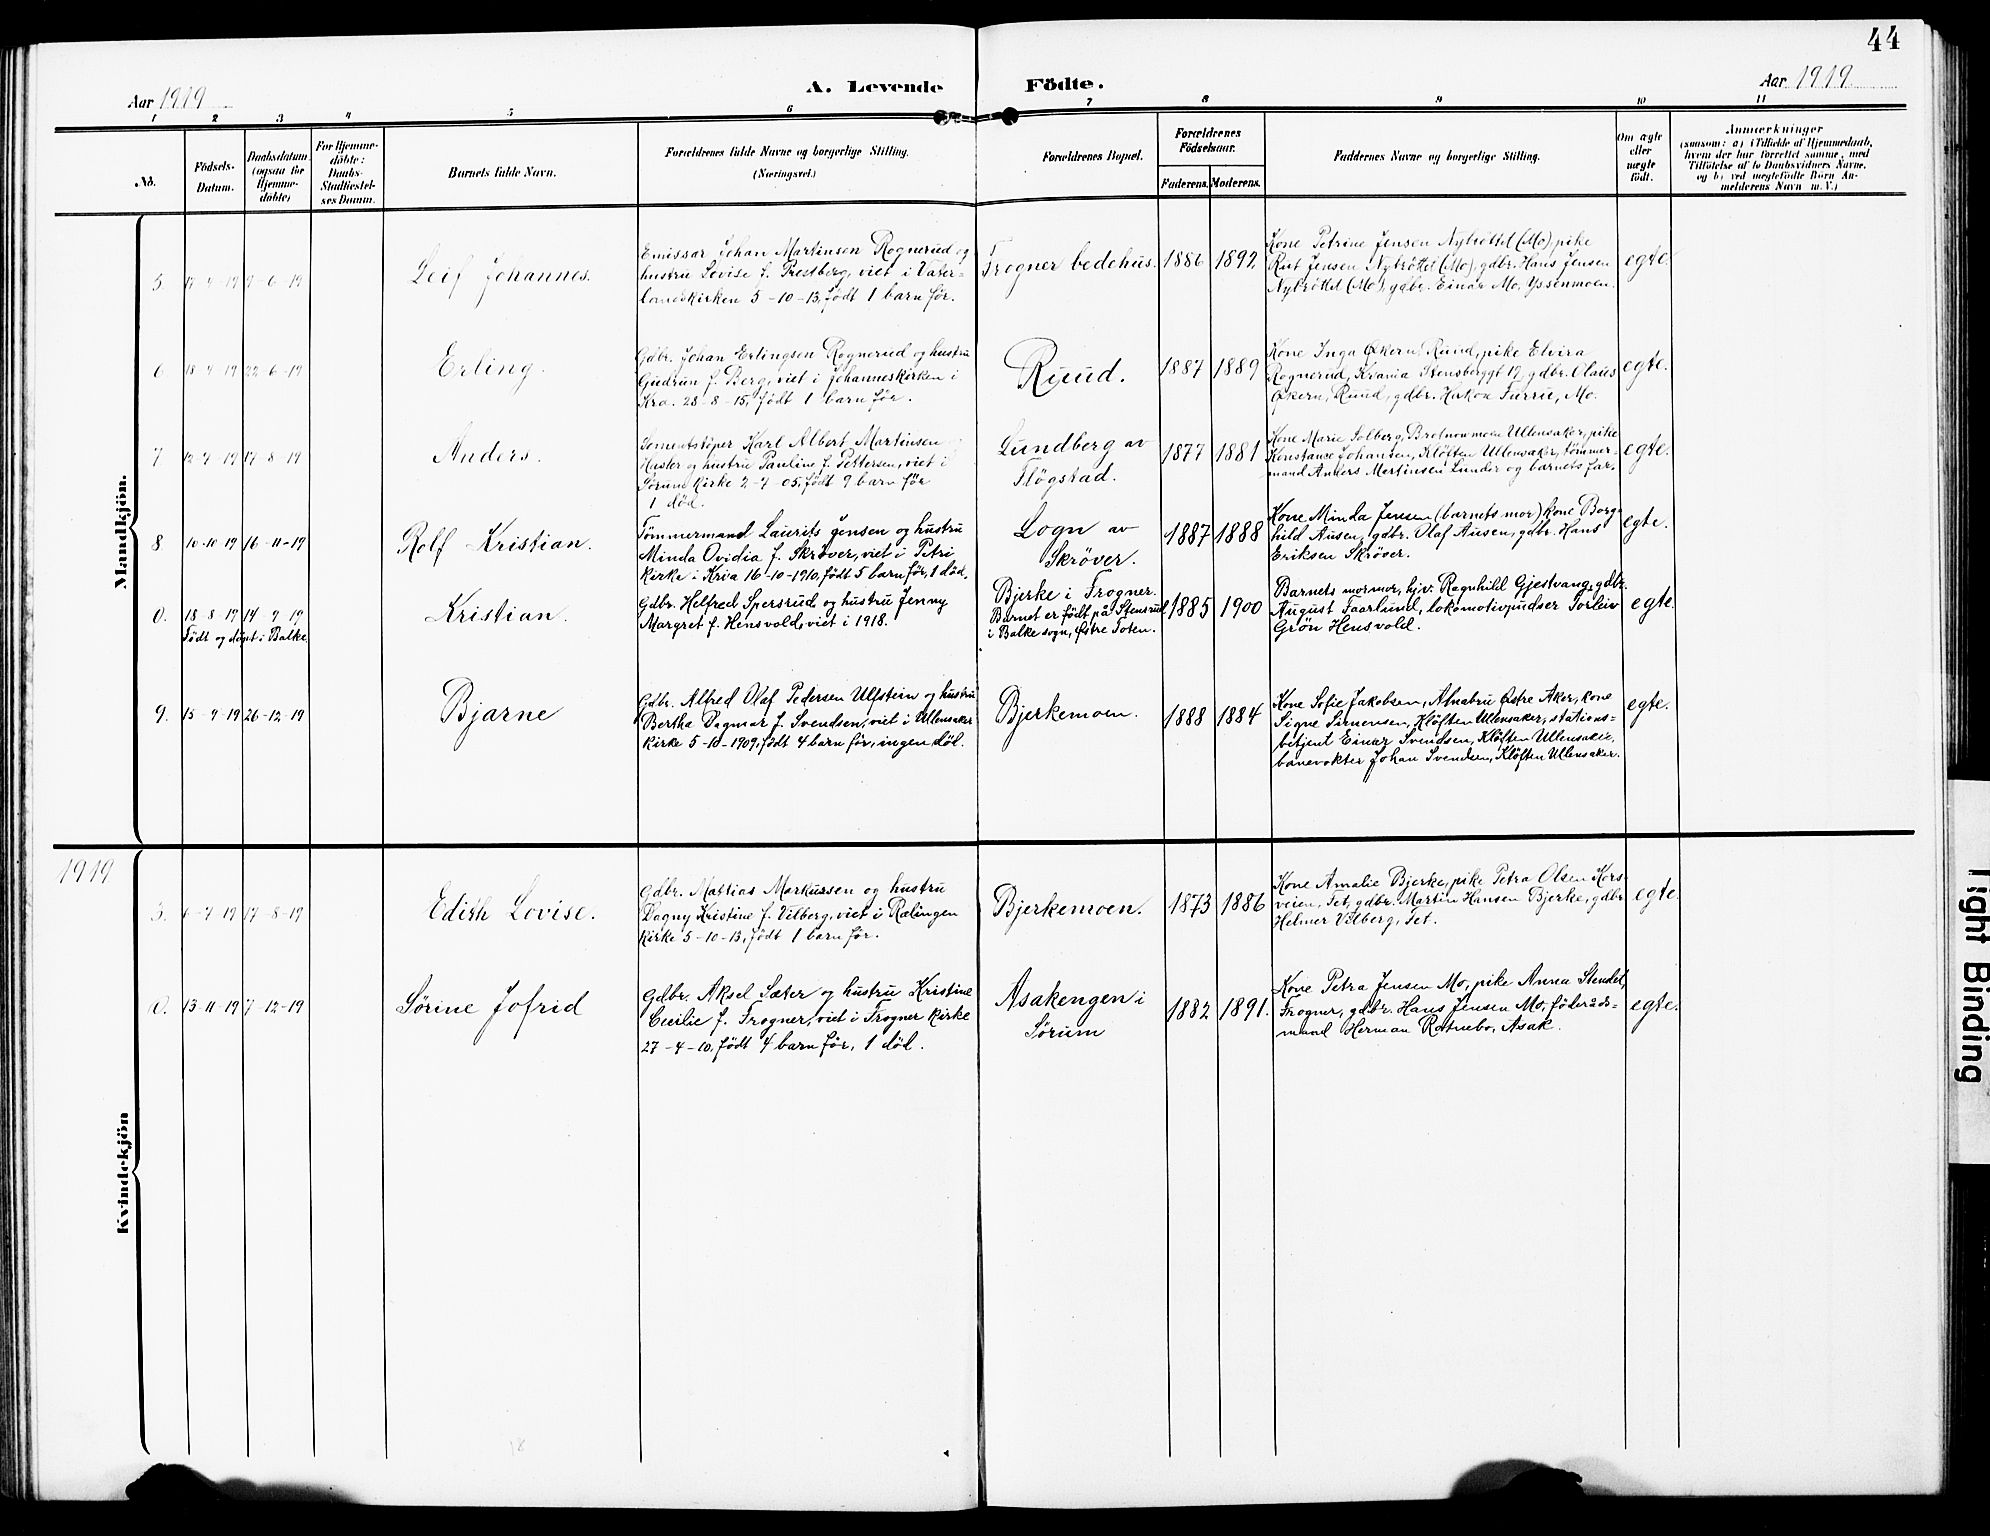 44
Aar 1919
A. Levende Födte.
Aar 1919
1 2 3 4 5 6 7 8 9 10 11
No.
Födsels-
Datum.
Daabsdatum
(ogsaa for
Hjemme-
döbte)
For Hjemme-
döbte:
Daabs-
Stadfæstel-
ses Datum.
Barnets fulde Navn.
Forældrenes fulde Navne og borgerlige Stilling.
(Næringsvei.)
Forældrenes Bopæl.
Forældrenes
Födselsaar.
Faderens. Moderens.
Faddernes Navne og borgerlige Stilling.
Om ægte
eller
uægte
født.
Anmærkninger
(saasom: a) (Tilfælde af Hjemmedaab,
hvem der har forrettet samme, med
Tilföielse af to Daabsvidners Navne,
og b) ved uægtefödte Börn An-
melderens Navn m. V.)
Mandkjön.
5. 9-6-19
Leif Johannes.
Emissær Johan Martinsen Rognerud og
hustru Lovise f. Prestberg, viet i Vater-
landskirken 5-10-13, født 1 barn før.
Frogner bedehus.
1886 1892
Kone Petrine Jensen Nybrottet (Mo), pike
Rut Jensen Nybrottet (Mo), gdbr. Hans Jensen
Nybrottet (Mo), gdbr. Einar Mo, Yssenmoen.
egte.
6 22-6-19
Erling.
Gdbr. Johan Erlingsen Rognerud og hustru
Gudrun f. Berg, viet i Johanneskirken i
Kra. 28-8-15, født 1 barn før.
Ruud.
1887 1889
Kone Inga Økern, Ruud, pike Elvira
Rognerud, Krania Stensberggt 17, gdbr. Olaus
Økern, Ruud, gdbr. Hakon Furrie, Mo.
egte.
7 17-8-19
Anders.
Sementstøper Karl Albert Martinsen
og hustru Pauline f. Pettersen, viet i
Sørum kirke 2-7-05, født 9 barn før
1 død.
Lundberg av
Fløgstad.
1877 1881
Kone Marie Solberg, Ullensaker, pike
Konstance Johansen, Kløften Ullensaker, tømmer-
mand Anders Martinsen Lunder og barnets far.
egte.
8 10-10-19 16-11-19
Rolf Kristian.
Tømmermand Laurits Jensen og hustru
Minda Ovidia f. Skrøver, viet i Petri
kirke i Kria 16-10-1910, født 5 barn før, 1 død.
Logn av
Skrøver.
1887 1888
Kone Minda Jensen (barnets mor) kone Borg-
hild Ausen, gdbr. Olaf Ausen, gdbr. Hans
Eriksen Skrøver.
egte.
0. 18-8-19 14-9-19
Født og døpt i Balke.
Kristian.
Gdbr. Helfred Spersrud og hustru Jenny
Margret f. Hensvold, viet i 1918.
Bjerke i Frogner.
Barnet er født på Stensrud
i Balke sogn, Østre Toten.
1885 1900
Barnets mormor, hjv. Ragnhild Gjestvang, gdbr.
August Faarlund, lokomotivpudser Torleiv
Grøn Hensvold.
egte.
9. 15-9-19 26-12-19
Bjarne
Gdbr. Alfred Olaf Pedersen Ulfstein og hustru
Bertha Dagmar f. Svendsen, viet i Ullensaker
kirke 5-10-1909, født 4 barn før, ingen død.
Bjerkemoen.
1888 1884
Kone Sofie Jakobsen, Alnabru Østre Aker, kone
Signe Simensen, Kløften Ullensaker, stations-
betjent Einar Svendsen, Kløften Ullensaker,
banevokter Johan Svendsen, Kløften Ullensaker.
egte.
1919
Kvindekjön
3. 17-8-19
Edith Lovise.
Gdbr. Mattias Markussen og hustru
Dagny Kristine f. Vilberg, viet i Rælingen
kirke 5-10-13, født 1 barn før.
Bjerkemoen.
1873 1886
Kone Amalie Bjerke, pike Petra Olsen Kors-
veien, Fet, gdbr. Martin Hansen Bjerke, gdbr
Helmer Vilberg, Fet.
egte.
0. 13-11-19 7-12-19
Sørine Jofrid
Gdbr. Aksel Sæter og hustru Kristine
Cecilie f. Frogner, viet i Frogner kirke
27-4-10, født 4 barn før, 1 død.
Asakengen i
Sørum
1882 1891.
Kone Petra Jensen Mo, pike Anna Stendet,
Frogner, gdbr. Hans Jensen Mo, föderåds-
mand Herman Ratnebo, Asak.
egte.
18
Tight Binding